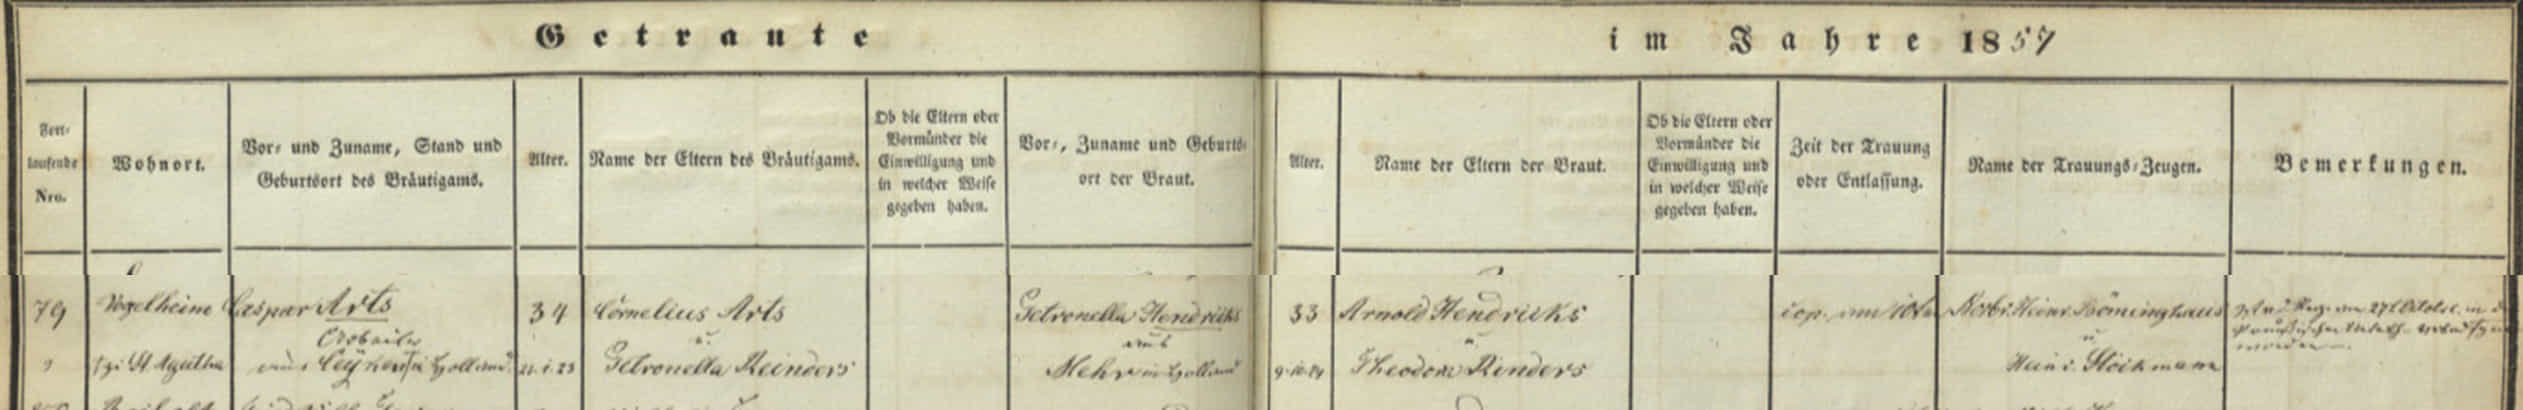 Getraute im Jahre 1857
Fort-
laufende
Nro.
Wohnort.
Vor- und Zuname, Stand und
Geburtsort des Bräutigams.
Alter.
Name der Eltern des Bräutigams.
Ob die Eltern oder
Vormünder die
Einwilligung und
in welcher Weise
gegeben haben.
Vor-, Zuname und Geburts-
ort der Braut.
Alter.
Name der Eltern der Braut.
Ob die Eltern oder
Vormünder die
Einwilligung und
in welcher Weise
gegeben haben.
Zeit der Trauung
oder Entlassung.
Name der Trauungs-Zeugen.
Bemerkungen.
79
Vogelheim
St. Agatha
Caspar Arts
aus in Holland
34
Cornelius Arts
u.
Petronella Reinders
Petronella Hendricks
aus
Mehr in Holland
33
Arnold Hendricks
u.
Theodora Rinders
cop. am
Heinr. Böminghaus
u.
Heinr. Stöckmann